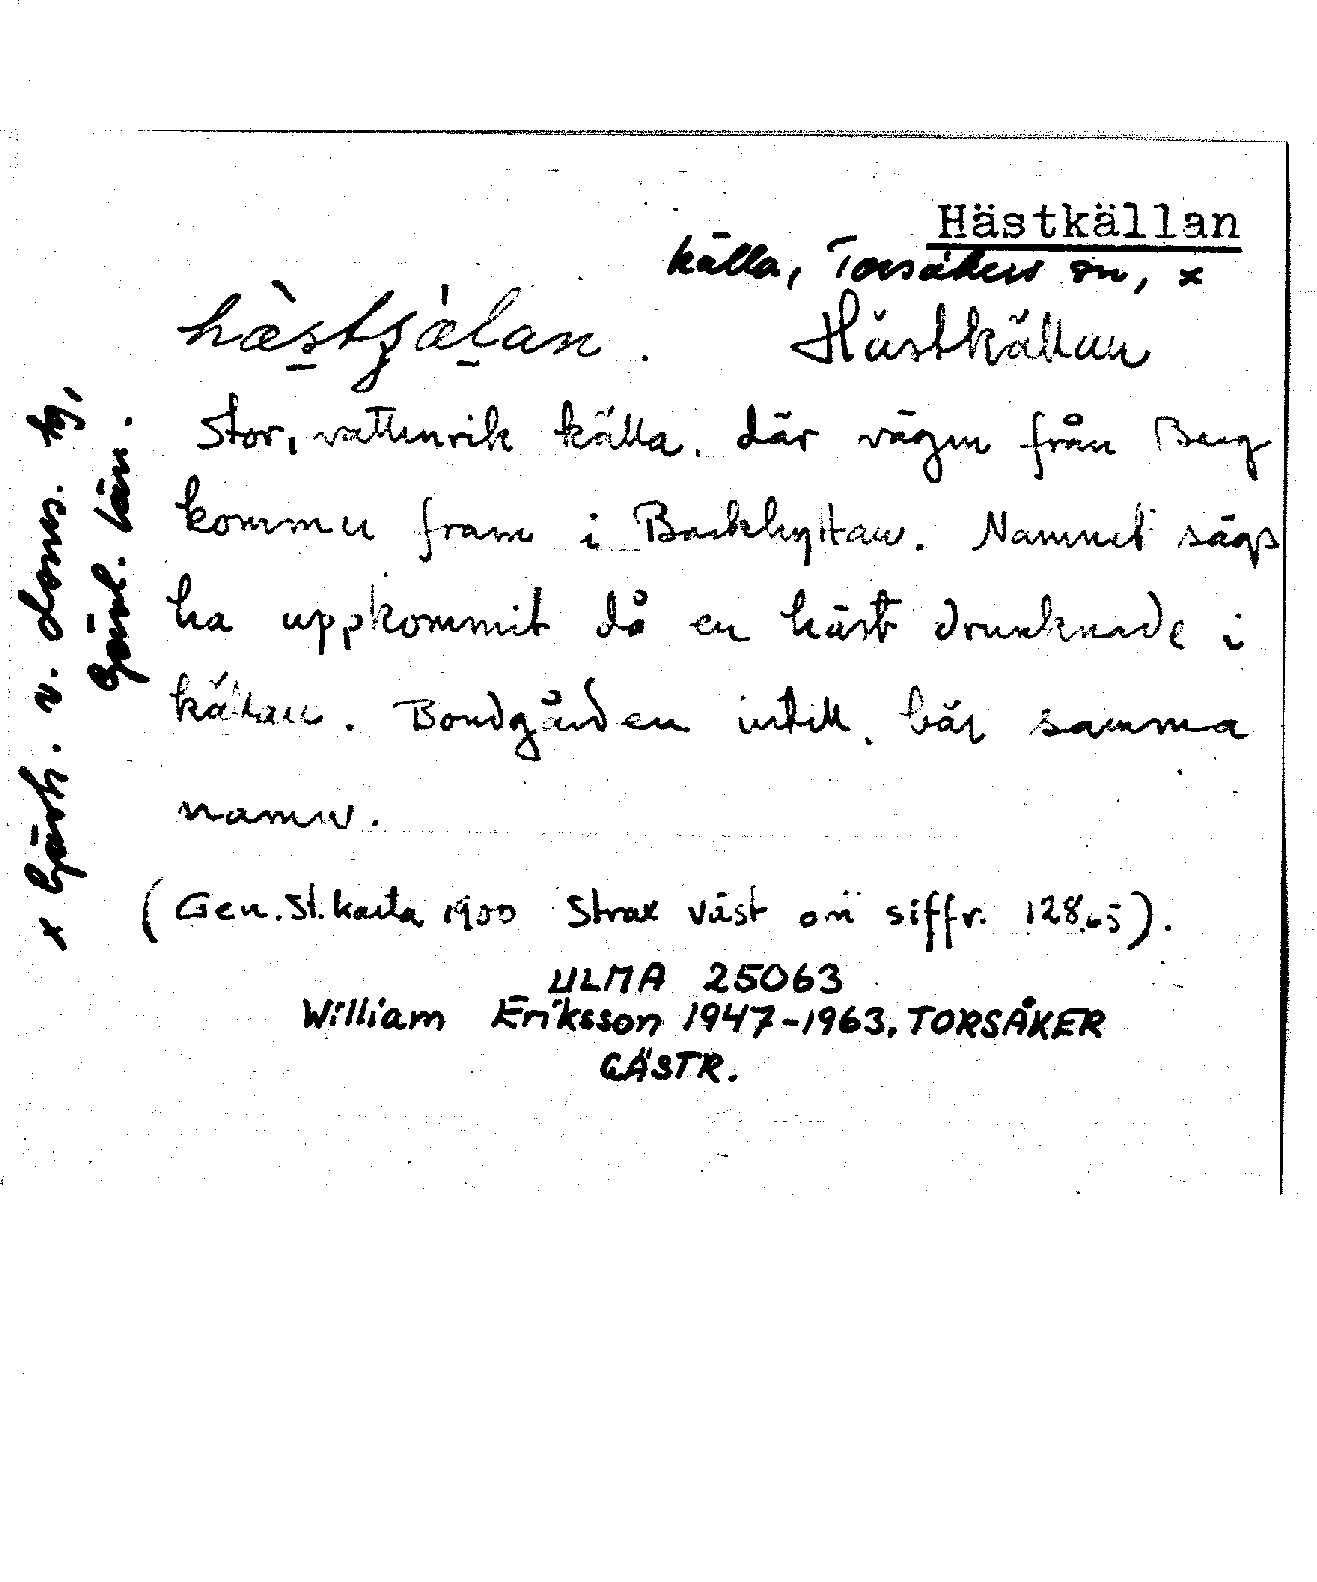 Hästkällan
källa, Torsåkers sn, x
Hästkällan
Stor, vattenrik källa, där vägen från Berg
kommer fram i Backhyttan. Namnet sägs
ha uppkommit då en häst drunknade i
källan. Bondgården intill bär samma
namn.
(Gen. St. karta 1900 Strax väst om siffr. 128.65).
ULMA 25063
William Eriksson 1947-1963, TORSÅKER
GÄSTR.
x Gästr. v. doms. tg,
Gävl. län.